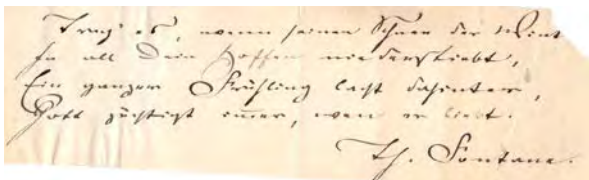 Trag' es, wenn seinen Schnee der Wint
In all Dein Hoffen niederstiebt,
Ein ganzer Frühling lacht dahinter,
Gott züchtigt im̄er, wen er liebt.
Th. Fontane.